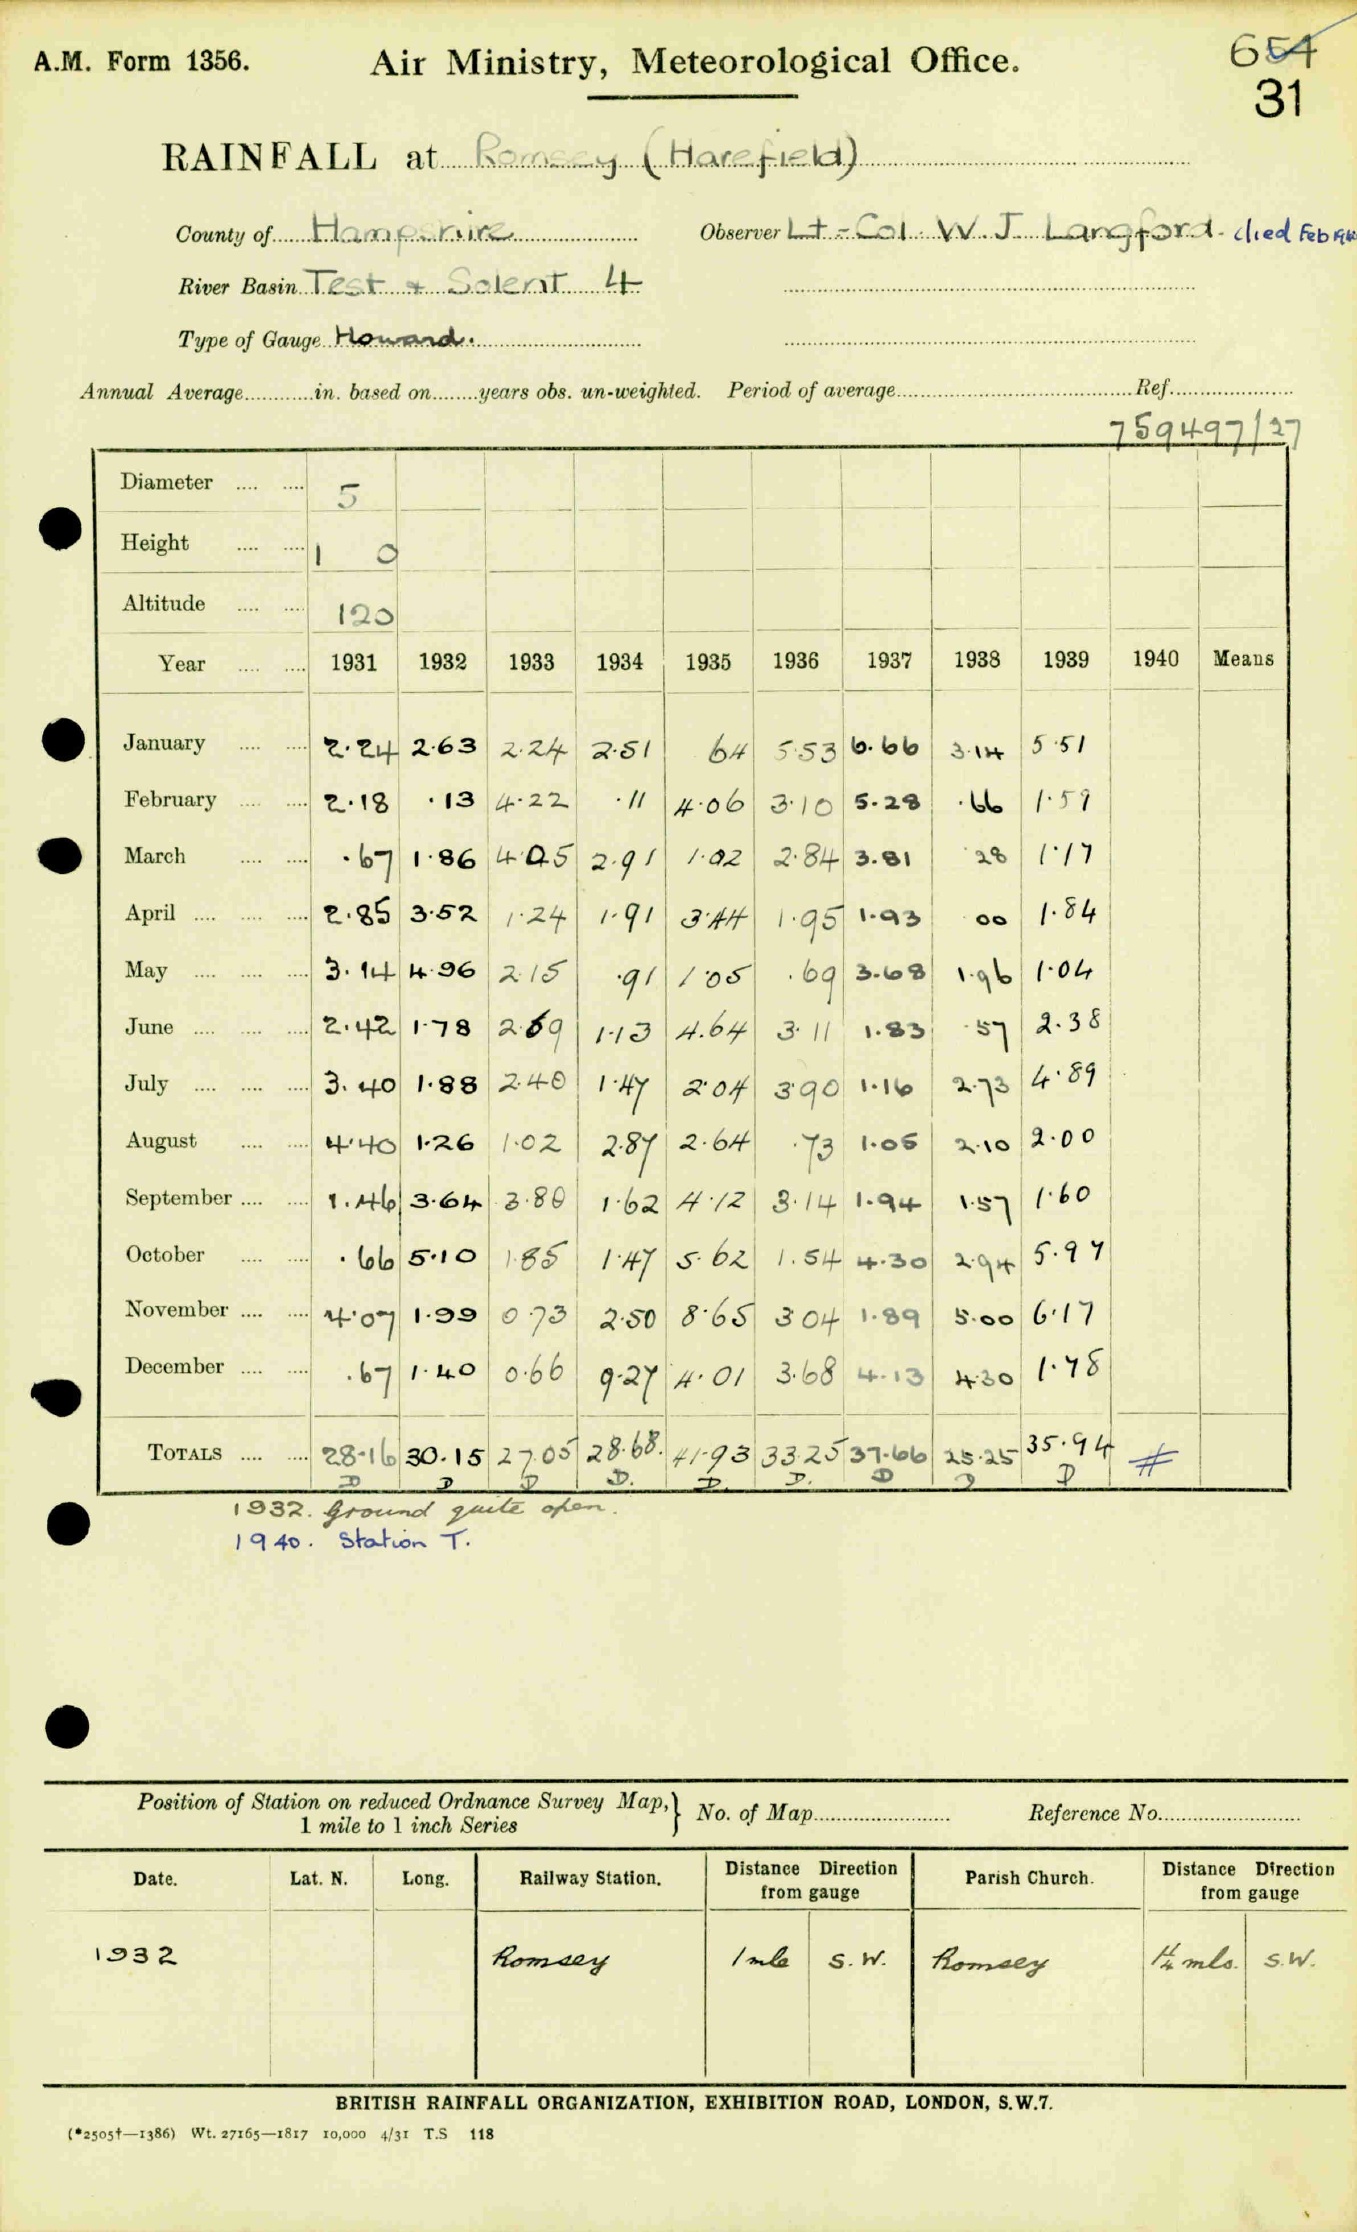 A.M. Form 1356. Air Ministry, Meteorological Office. 654
31
RAINFALL at Romsey (Harefield)
County of Hampshire Observer Lt-Col. W. J. Langford. died Feb
River Basin Test + Solent 4
Type of Gauge Howard.
Annual Average............in. based on........years obs. un-weighted. Period of average........Ref........
759497/27
Diameter .... .... 5
Height .... .... 1 0
Altitude .... .... 120
Year .... .... 1931 1932 1933 1934 1935 1936 1937 1938 1939 1940 Means
January .... .... 2.24 2.63 2.24 2.51 64 5.53 6.66 3.14 5.51
February .... .... 2.18 .13 4.22 .11 4.06 3.10 5.28 .66 1.59
March .... .... .67 1.86 4.05 2.91 1.02 2.84 3.81 .28 1.17
April .... .... .... 2.85 3.52 1.24 1.91 3.44 1.95 1.93 00 1.84
May .... .... .... 3.14 4.96 2.15 .91 1.05 .69 3.68 1.96 1.04
June .... .... .... 2.42 1.78 2.69 1.13 4.64 3.11 1.83 .57 2.38
July .... .... .... 3.40 1.88 2.40 1.47 2.04 3.90 1.16 2.73 4.89
August .... .... 4.40 1.26 1.02 2.87 2.64 .73 1.05 2.10 2.00
September .... .... 1.46 3.64 3.80 1.62 4.12 3.14 1.94 1.57 1.60
October .... .... .66 5.10 1.85 1.47 5.62 1.54 4.30 2.94 5.97
November .... .... 4.07 1.99 0.73 2.50 8.65 3.04 1.89 5.00 6.17
December .... .... .67 1.40 0.66 9.27 4.01 3.68 4.13 4.30 1.78
TOTALS .... .... 28.16 30.15 27.05 28.68. 41.93 33.25 37.66 25.25 35.94 #
D D D D. D. D. D D D
1932. Ground quite open.
1940. Station T.
Position of Station on reduced Ordnance Survey Map,} No. of Map........ Reference No........
1 mile to 1 inch Series
Date. Lat. N. Long. Railway Station. Distance Direction from gauge Parish Church. Distance Direction from gauge
1932 Romsey 1 mle S.W. Romsey 1¼ mls. S.W.
BRITISH RAINFALL ORGANIZATION, EXHIBITION ROAD, LONDON, S.W.7.
(*2505†—1386) Wt. 27165—1817 10,000 4/31 T.S 118